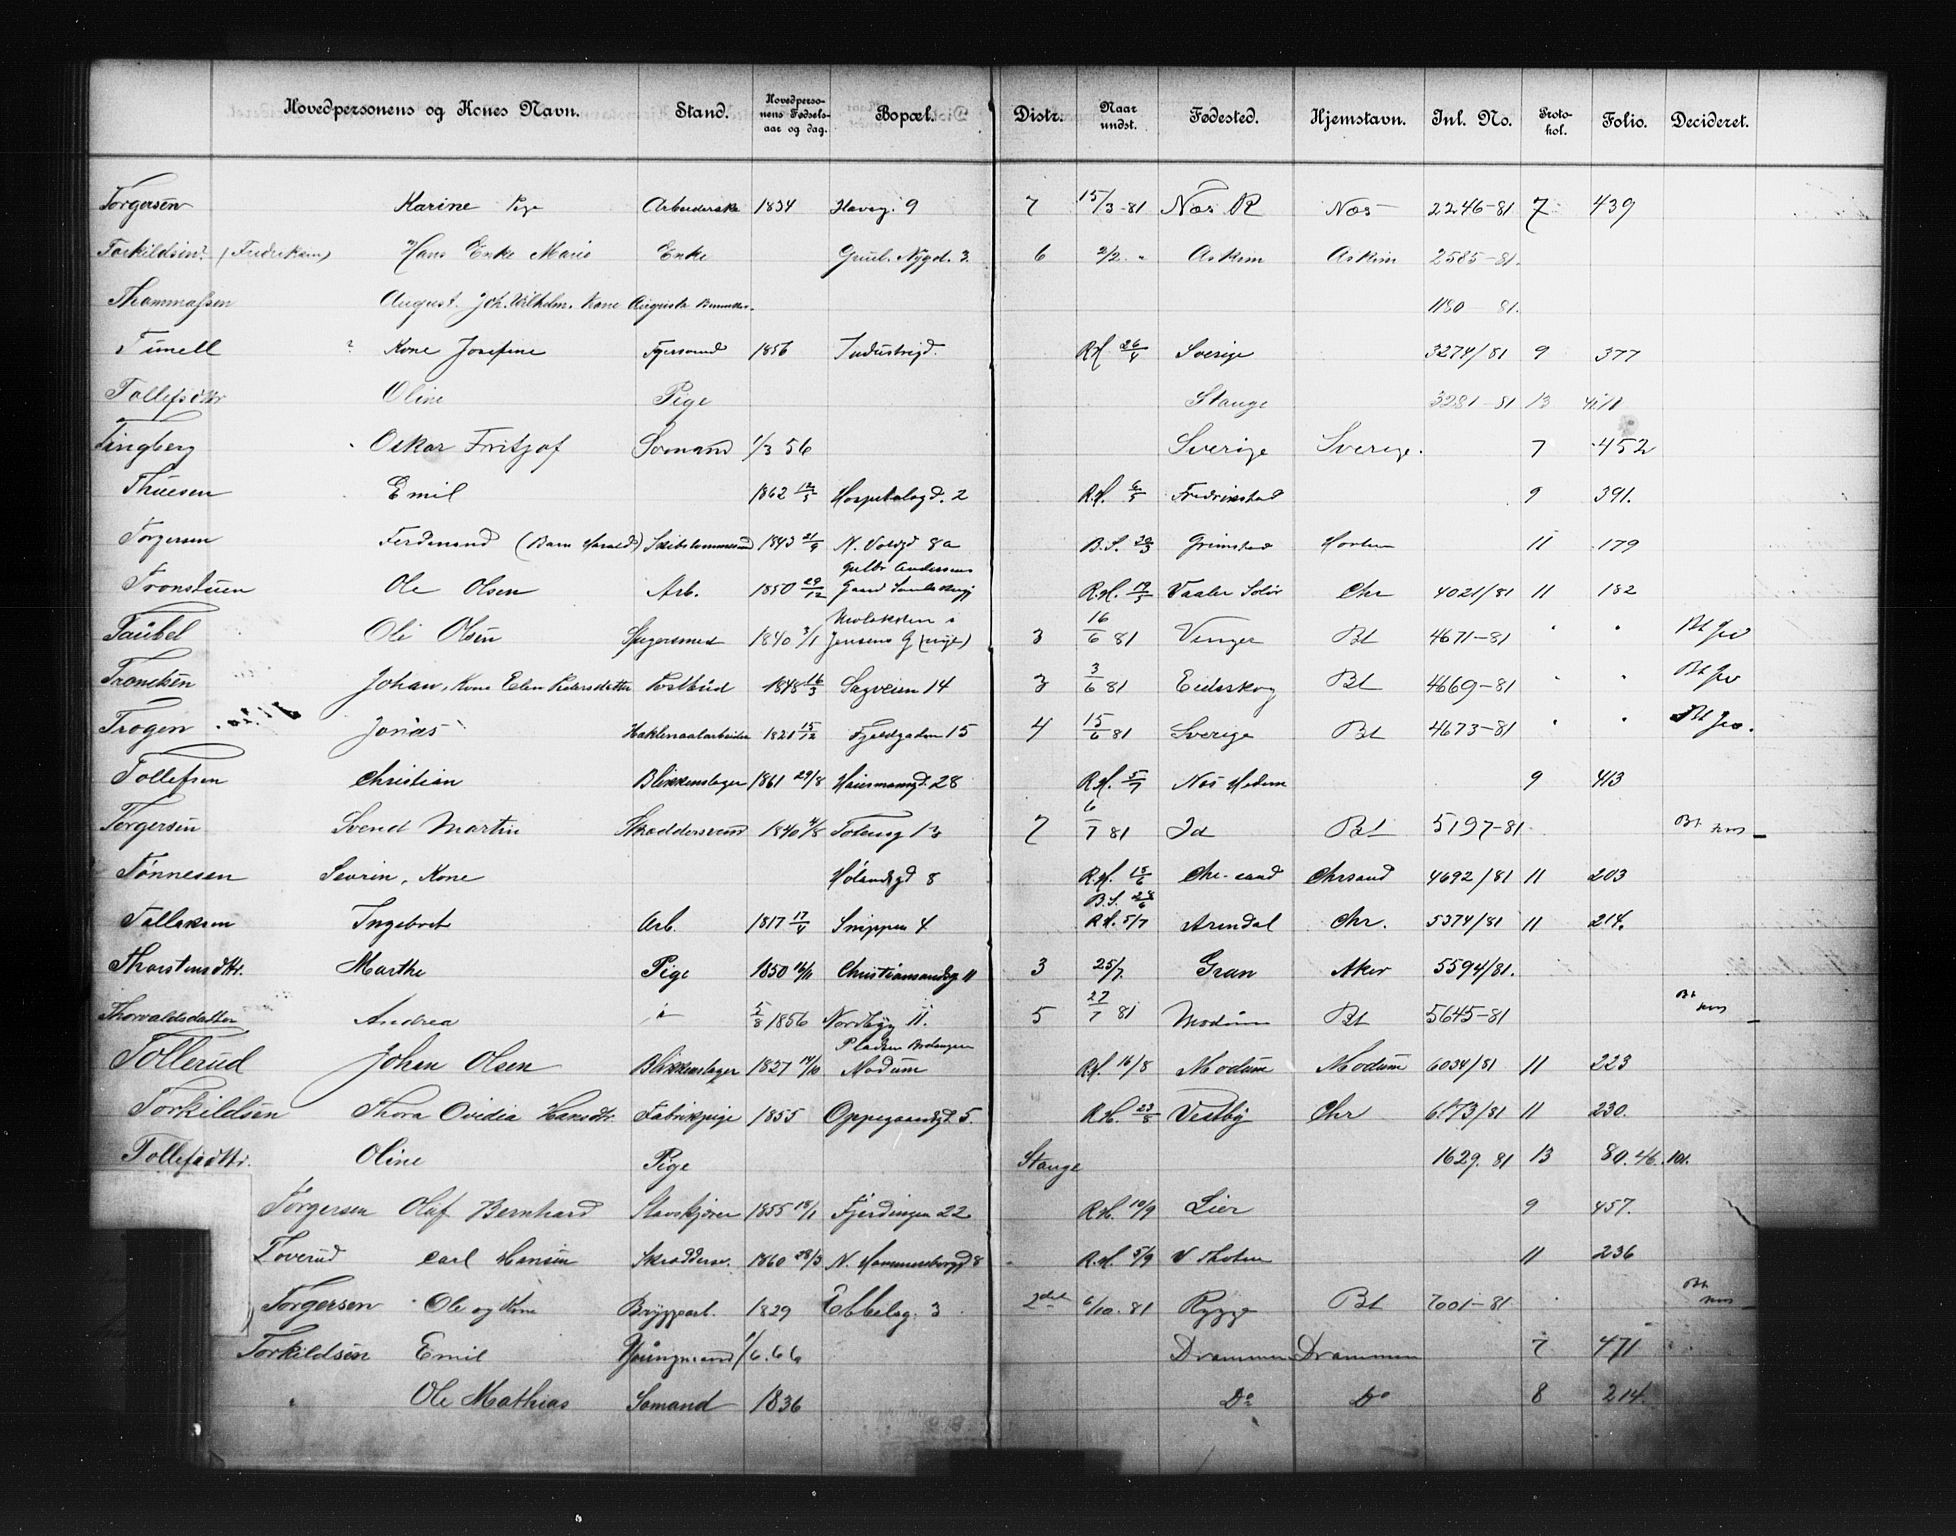 Hovedpersonens og Kones Navn. Stand. Hovedperso-nens Fødsels-aar og dag. Bopæl. Distr. Naar undst. Fødested. Hjemstavn. Inl. No. Proto-kol. Folio. Decideret.
Torgersen Karine Pige Arbeiderske 1834 Havsg. 9 7 15/3-81 Næs R Næs 2246-81 7 439
Torkildsen? (Fredriksen) Hans Enke Marie Enke Nygd. 3. 6 2/2 " Askim Askim 2585-81.
Thommassen August. Joh. Wilhelm. Kone Augusta 1180 81.
Tunell ? Kone Josefine 1856 Industrigd. R.H. 26/4 Sverige 3274/81 9 377
Tollefsdttr Oline Pige Stange 3281-81 13
Tingberg Oskar Fritjof Sømand 1/3 56 Sverige Sverige. 7 452
Thuesen Emil 1862 12/5 Hospitalsgd. 2 R.H. 6/5 Fredrikstad 9 391.
Torgersen Ferdinand (Barn Harald) Skibstømmermd 1843 21/9 N. Voldgd 8a B.S. 29/3 Grimstad Horten 11 179
Tronstuen Ole Olsen Arb. 1850 29/12 Gulbr Andersens Gaard R.H. 19/5 Vaaler Solør Chr 4021/81 11 182
Taubel Ole Olsen Spigersmed 1840 3/1 Jensens G 3 16/6 81 Vinger Bt 4671-81 " " Bt
Tronsken Johan, Kone Elen Pedersdatter Postbud 1848 16/3 Sagveien 14 3 3/6 81 Eidsskog Bt 4669-81 " " Bt
Trogen Jonas 1821 15/12 Fjeldgaden 15 4 15/6 81 Sverige Bt 4673-81 " " Bt
Tollefsen Christian Blikkenslager 1861 29/8 Hausmannsgd. 28 R.H. 5/7 Næs Hedem 9 413
Torgersen Svend Martin Skræddersvend 1840 4/8 Totensg 13 7 6/7 81 Id Bt 5197-81 Bt
Tønnesen Sevrin, Kone Hølandsgd 8 R.H. 15/6 Chr.sand Chrsand 4692/81 11 203
Tallaksen Ingebret Arb. 1817 17/4 Snippen 4 B.S. 28/6 R.H. 5/7 Arendal Chr. 5374/81 11 214.
Thorstensdttr. Marthe Pige 1850 Christiansandsg 11 3 25/7. Gran Aker 5594/81.
Thorvaldsdatter Andrea 5/8 1856 Nordbyg 11. 5 27/7 81 Modum Bt 5645-81 Bt
Tollerud Johan Olsen Blikkenslager 1827 14/10 Pladsen Modum R.H. 16/8 Modum Modum 6034/81 11 223
Torkildsen Thora Ovidia Hansdtr. Fabrikpige 1855 Oppegaardsgd. 5. R.H. 23/8 Vestby Chr 6173/81 11 230.
Tollefsdttr. Oline Pige Stange 1629. 81 13 80. 46. 101.
Torgersen Olaf Bernhard 1855 18/1 Fjerdingen 22 R.H. 10/9 Lier 9 457.
Toverud Carl Hansen Skræddersv. 1860 28/3 N. Hammersborggd 8 R.H. 5/9 V Thoten 11 236
Torgersen Ole og Kone Bryggearb. 1829 Ebbelsg. 3 2det 6/10. 81 Rygge Bt 7001-81 Bt
Torkildsen Emil Youngmand 1/6.66 Drammen Drammen 7 471
" Ole Mathias Sømand 1836 Do Do 8 214.